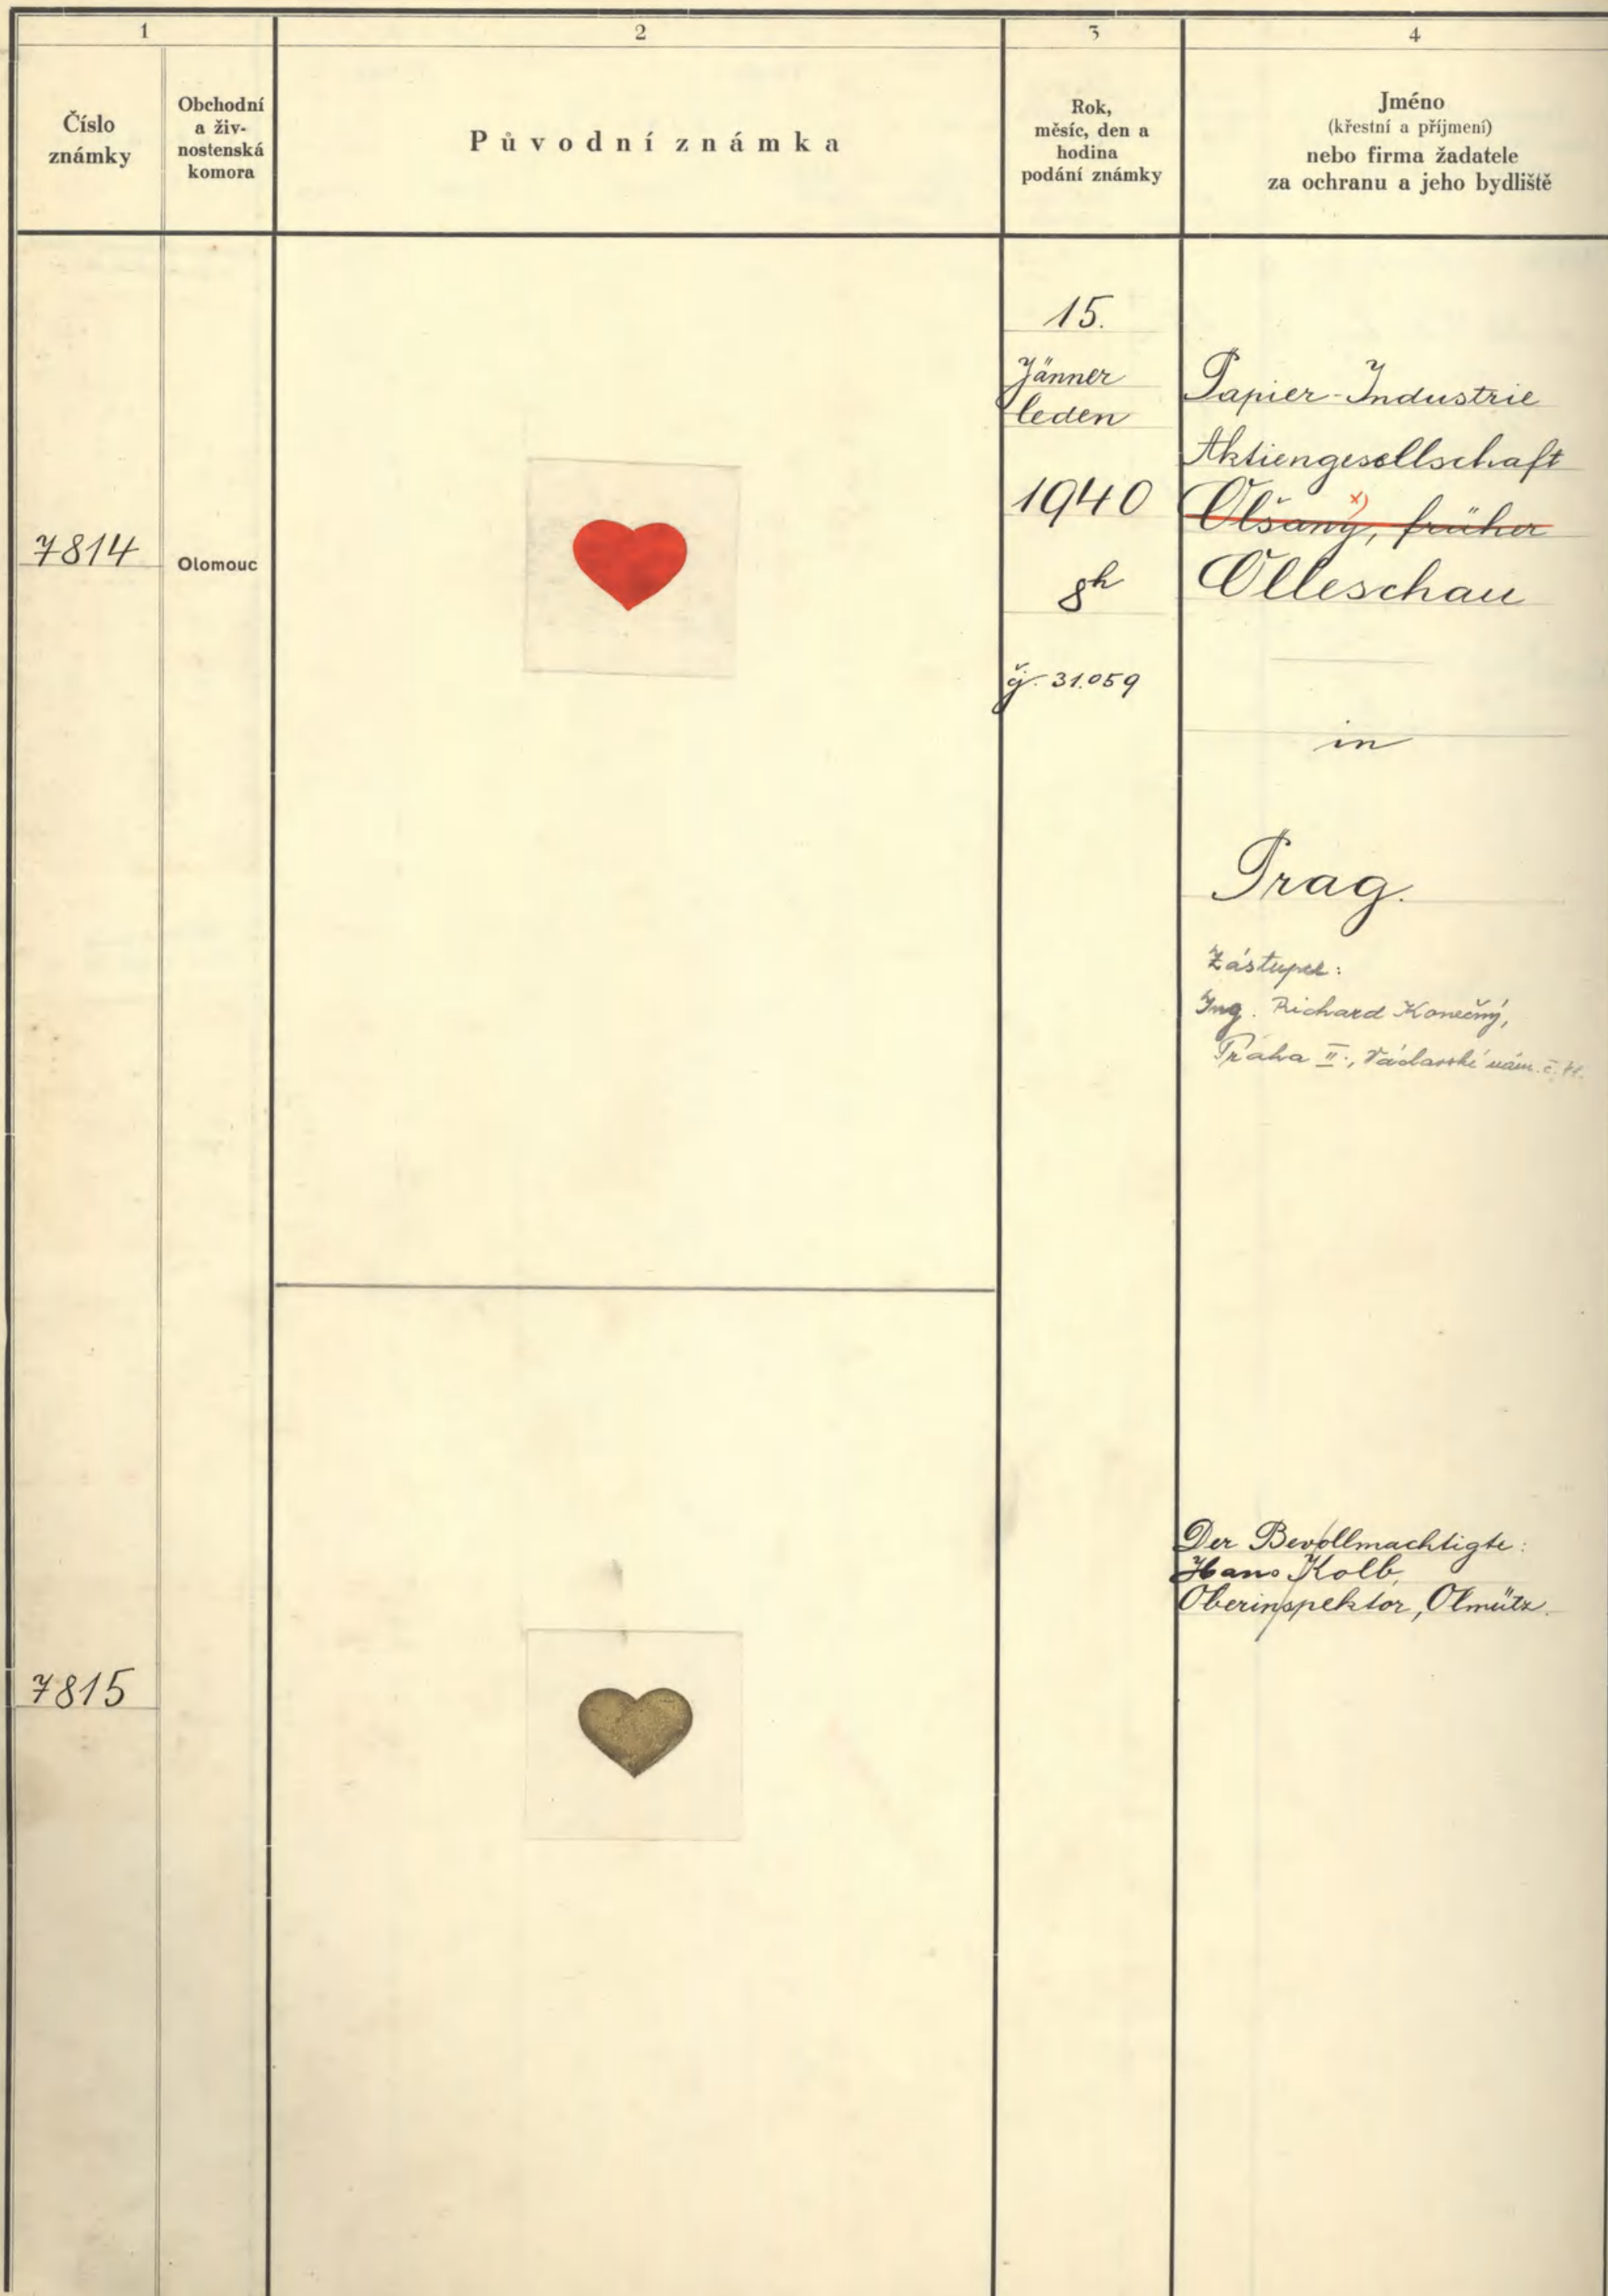 1
2
3
4
Číslo
známky
Obchodní
a živ-
nostenská
komora
Původní známka
Rok,
měsíc, den a
hodina
podání známky
Jméno
(křestní a příjmení)
nebo firma žadatele
za ochranu a jeho bydliště
7814
Olomouc
15.
Jänner
leden
1940
8h
čj. 31.059
Papier-Industrie
Aktiengesellschaft
x)
Olšany, früher
Olleschau
in
Prag.
Zástupce:
Ing. Richard Konečný,
Praha II., Václavské nám. č.
Der Bevollmachtigte:
Hans Kolb,
Oberinspektor, Olmütz.
7815